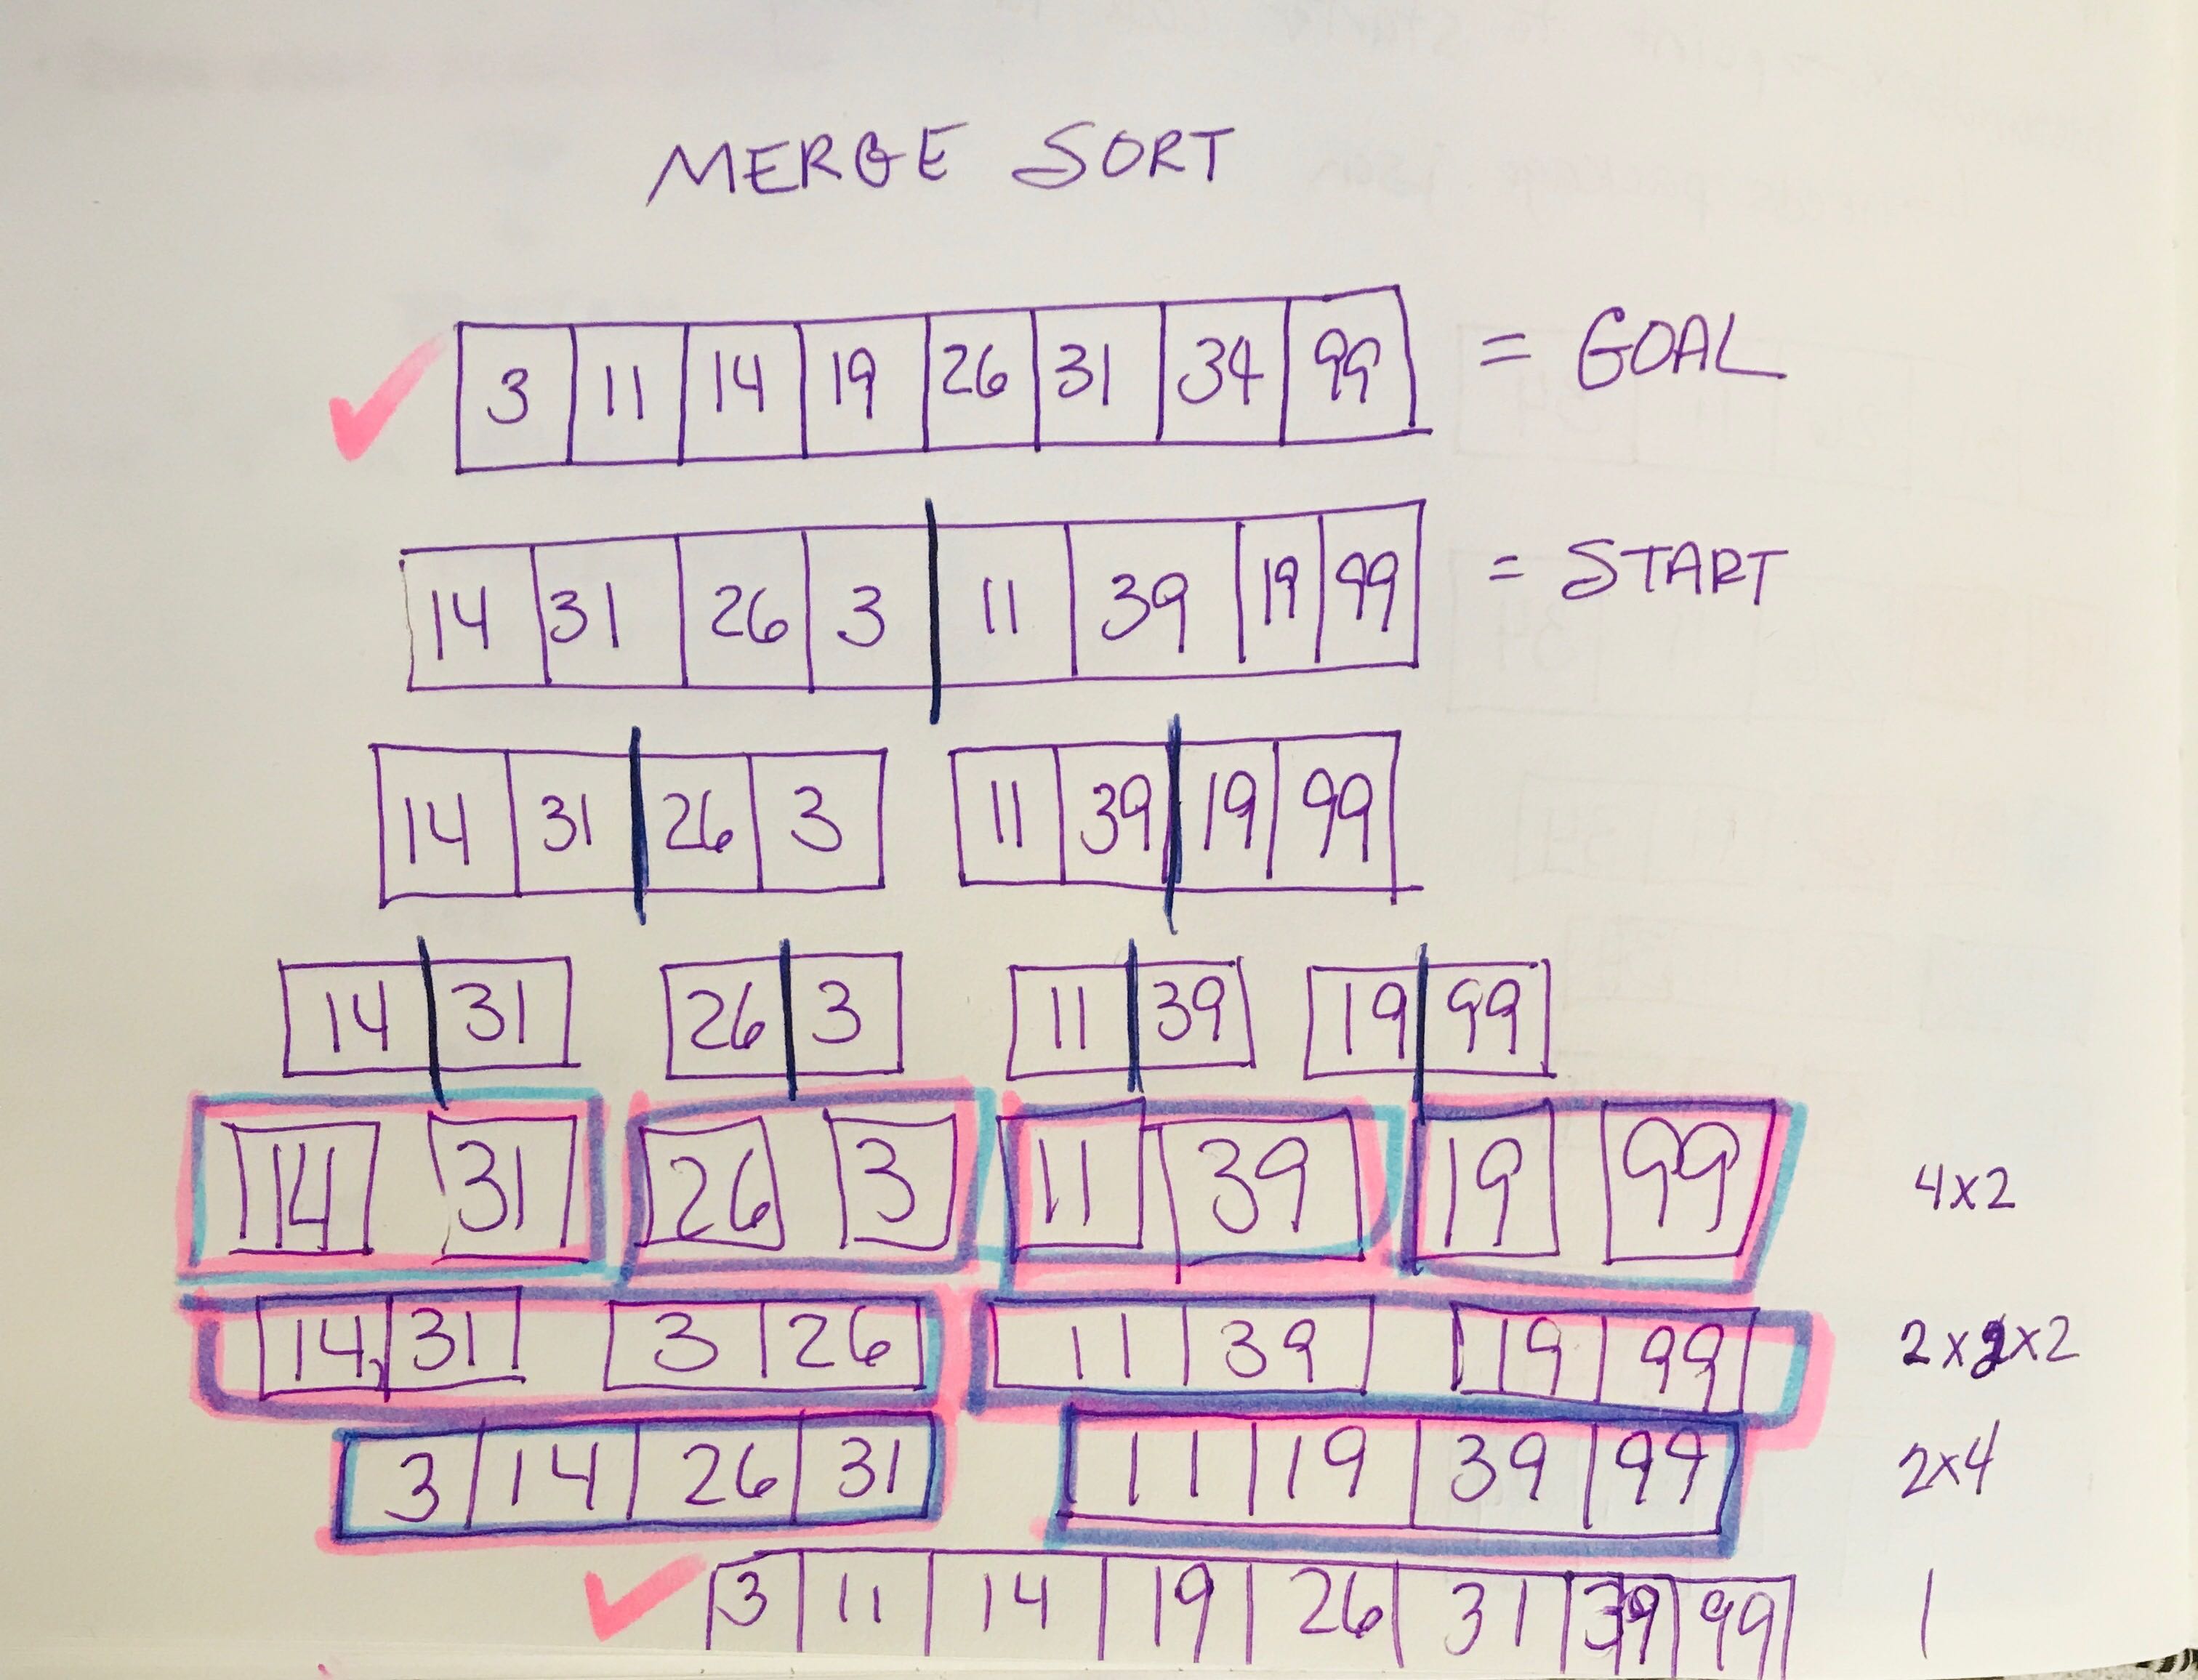 MERGE SORT
3 11 14 19 26 31 34 99 = GOAL
14 31 26 3 11 39 19 99 = START
14 31 26 3 11 39 19 99
14 31 26 3 11 39 19 99
14 31 26 3 11 39 19 99 4x2
14 31 3 26 11 39 19 99 2x2x2
3 14 26 31 11 19 39 99 2x4
3 11 14 19 26 31 39 99 1